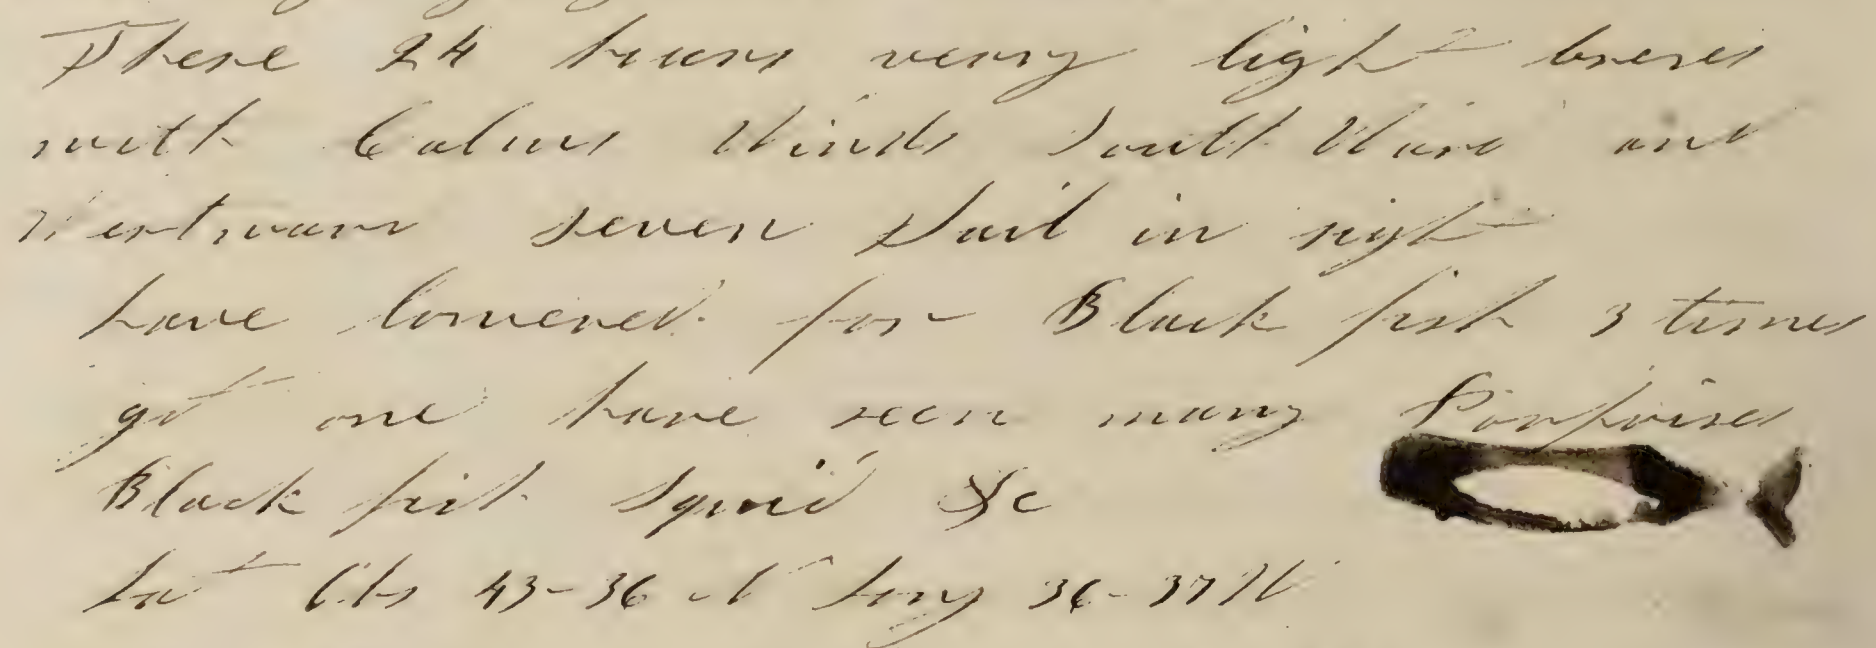 These 24 hours verry light breses
with Calms Winds South Ward and
Westward seven Sail in sight
have lowered for Black fish 3 times
got one have seen many Porpoises
Black fish Squid &c
Lat Obs 43-36 N Long 36-37 W